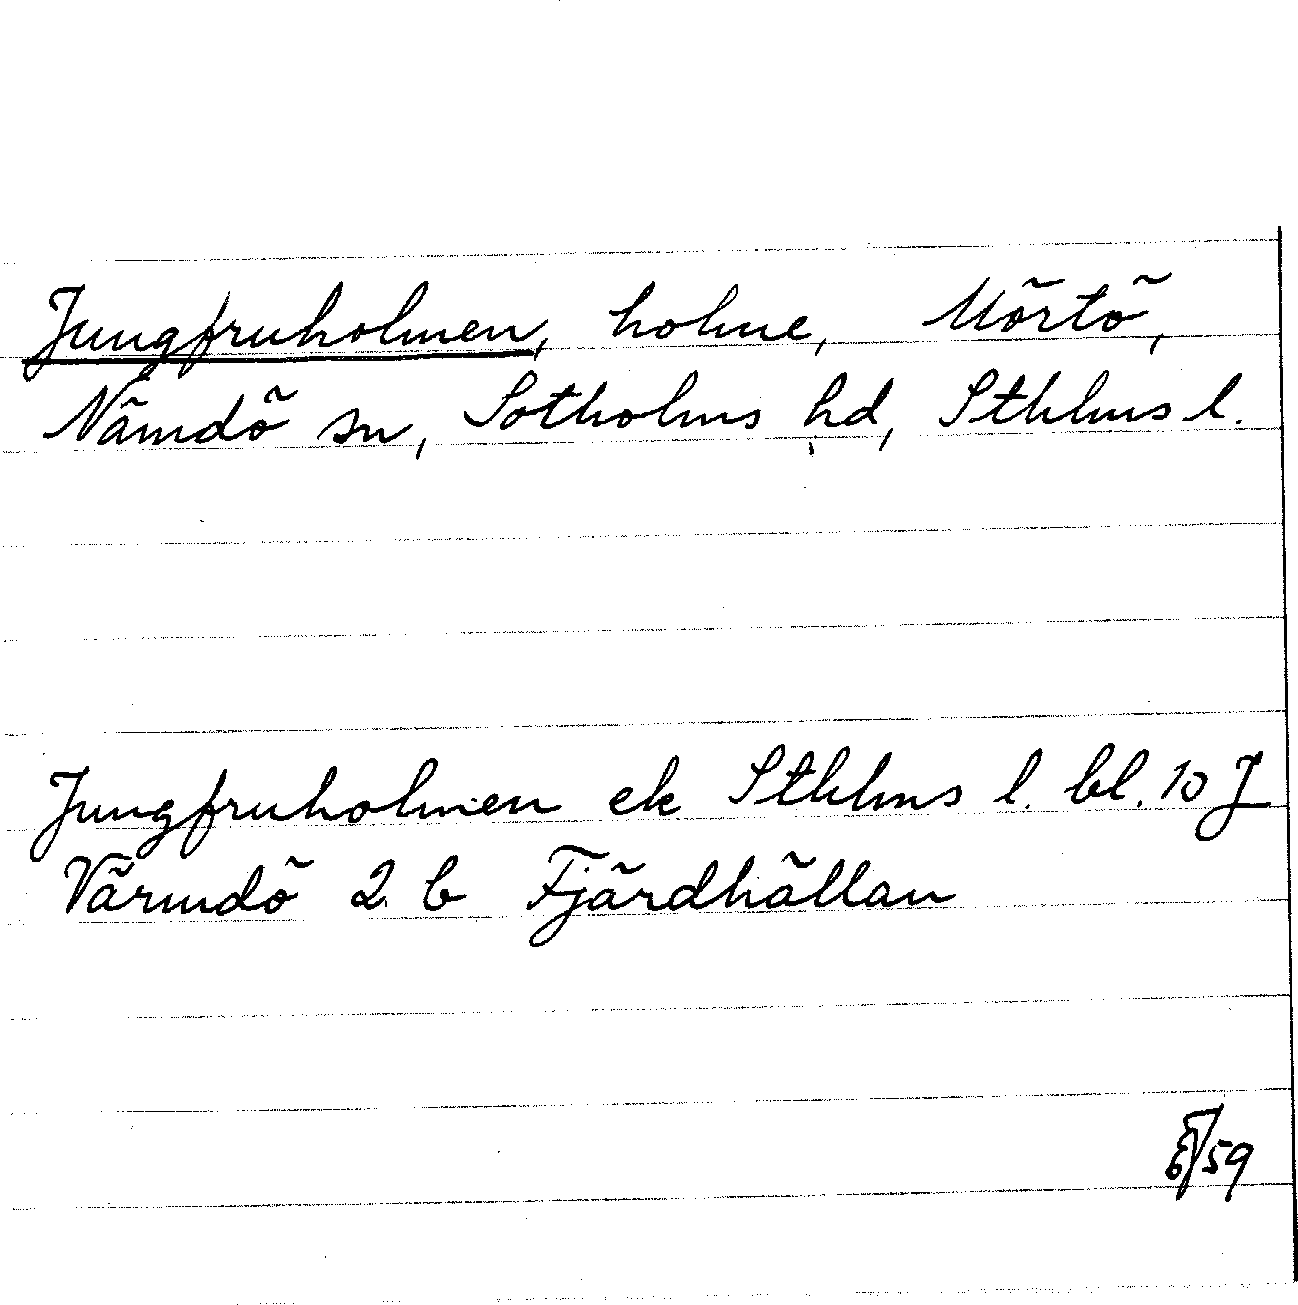 Jungfruholmen, holme, Mörtö,
Nämdö sn, Sotholms hd, Sthlms l.
Jungfruholmen ek Sthlms l. bl. 10 J
Värmdö 2 b Fjärdhällan
/59